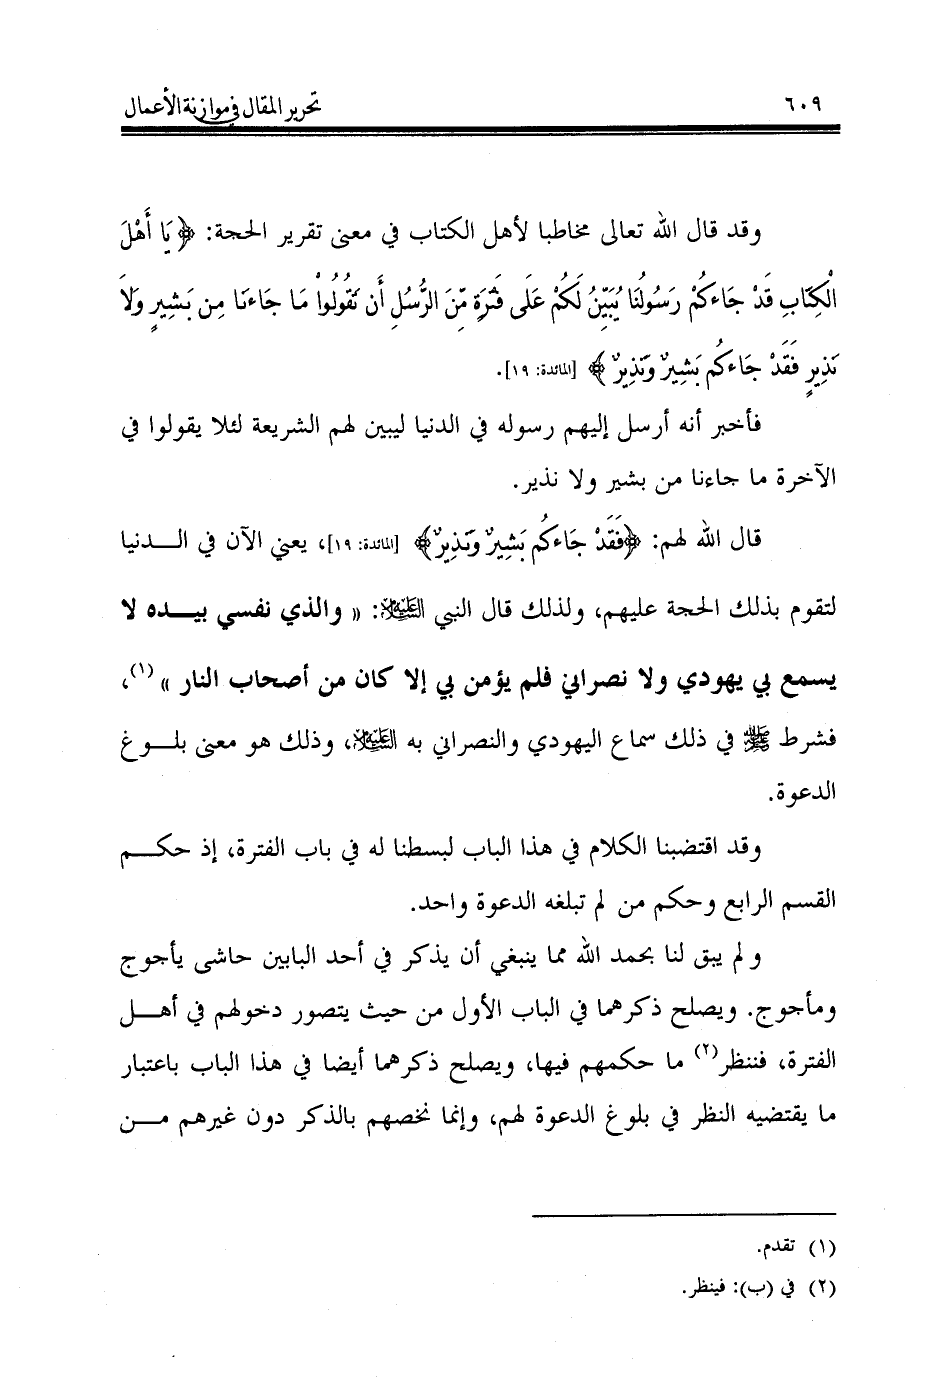 ٦٠٩ تحرير المقال في موازنة الأعمال
وقد قال الله تعالى مخاطبا لأهل الكتاب في معنى تقرير الحجة: ﴿يَا أَهْلَ
الْكِتَابِ قَدْ جَاءكُمْ رَسُولُنَا يُبَيِّنُ لَكُمْ عَلَى فَتْرَةٍ مِّنَ الرُّسُلِ أَن تَقُولُواْ مَا جَاءنَا مِن بَشِيرٍ وَلاَ
نَذِيرٍ فَقَدْ جَاءكُم بَشِيرٌ وَنَذِيرٌ﴾ [المائدة: ١٩].
فأخبر أنه أرسل إليهم رسوله في الدنيا ليبين لهم الشريعة لئلا يقولوا في
الآخرة ما جاءنا من بشير ولا نذير.
قال الله لهم: ﴿فَقَدْ جَاءكُم بَشِيرٌ وَنَذِيرٌ﴾ [المائدة: ١٩]، يعني الآن في الـــدنيا
لتقوم بذلك الحجة عليهم، ولذلك قال النبي الطّيّه: « والذي نفسي بيـــده لا
يسمع بي يهودي ولا نصراني فلم يؤمن بي إلا كان من أصحاب النار »(١)،
فشرط ﷺ في ذلك سماع اليهودي والنصراني به الطّيّه، وذلك هو معنى بلـــوغ
الدعوة.
وقد اقتضبنا الكلام في هذا الباب لبسطنا له في باب الفترة، إذ حكـــم
القسم الرابع وحكم من لم تبلغه الدعوة واحد.
و لم يبق لنا بحمد الله مما ينبغي أن يذكر في أحد البابين حاشى يأجوج
ومأجوج. ويصلح ذكرهما في الباب الأول من حيث يتصور دخولهم في أهـــل
الفترة، فننظر(٢) ما حكمهم فيها، ويصلح ذكرهما أيضا في هذا الباب باعتبار
ما يقتضيه النظر في بلوغ الدعوة لهم، وإنما نخصهم بالذكر دون غيرهم مـــن
(١) تقدم.
(٢) في (ب): فينظر.